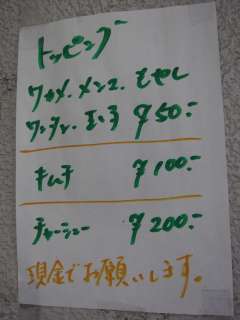 トッピング
ワカメ、メンマ、もやし
ワンタン、玉子 ¥50:-
キムチ ¥100:-
チャーシュー ¥200:-
現金でお願いします。